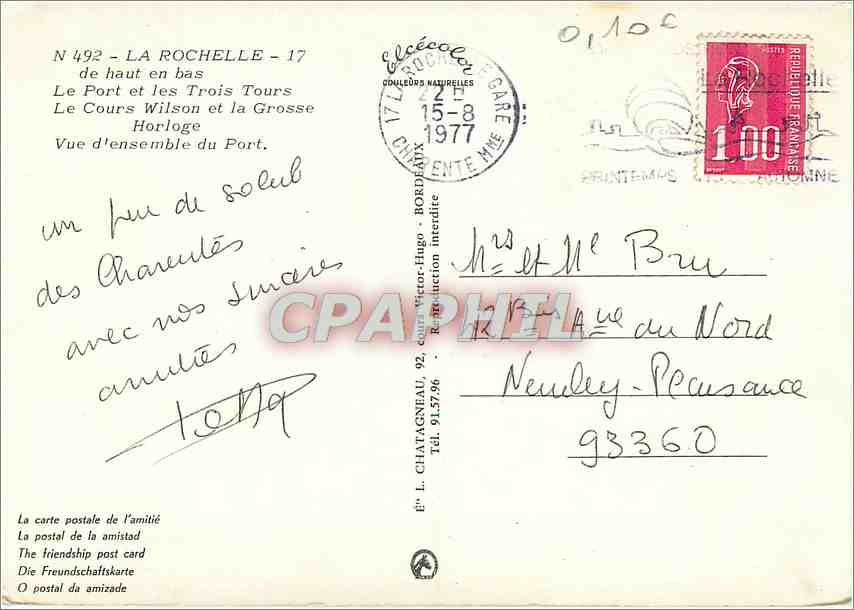 N 492 - LA ROCHELLE - 17
de haut en bas
Le Port et les Trois Tours
Le Cours Wilson et la Grosse
Horloge
Vue d'ensemble du Port.
Elcécolor
COULEURS NATURELLES
17 LA ROCHELLE GARE
22H
15-8
1977
CHARENTE MME
0,10€
POSTES
REPUBLIQUE FRANÇAISE
1.00
La Rochelle
PRINTEMPS AUTOMNE
un peu de soleil
des Charentes
avec nos sincères
amitiés
Mrs et Me Bru
42 Bis Ave du Nord
Neuilly-Plaisance
93360
Éts L. CHATAGNEAU, 92, cours Victor-Hugo - BORDEAUX
Tél. 91.57.96 - Reproduction interdite
CPAPHIL
La carte postale de l'amitié
La postal de la amistad
The friendship post card
Die Freundschaftskarte
O postal da amizade